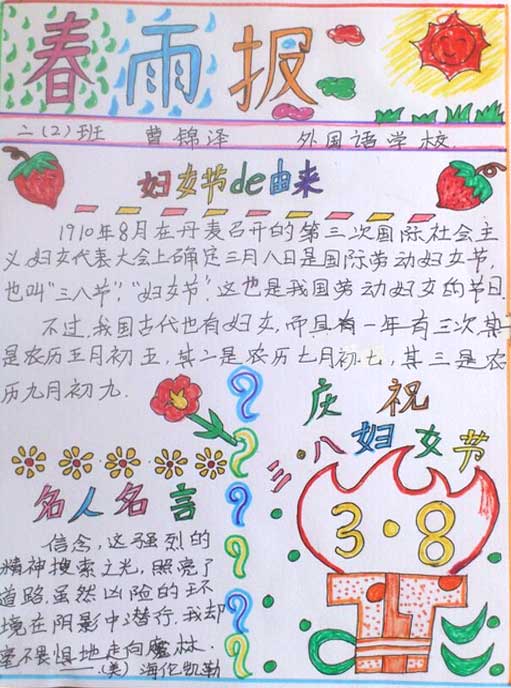 春雨报
二(2)班 曹锦泽 外国语学校.
妇女节de由来
1910年8月在丹麦召开的第三次国际社会主
义妇女代表大会上确定三月八日是国际劳动妇女节,
也叫“三八节”,“妇女节”,这也是我国劳动妇女的节日.
不过,我国古代也有妇女,而且有一年有三次,其一
是农历五月初五,其二是农历七月初七,其三是农
历九月初九.
庆祝
三·八妇女节
3·8
名人名言
信念,这强烈的
精神搜索之光,照亮了
道路,虽然凶险的环
境在阴影中潜行,我却
毫不畏惧地走向魔林.
——(美) 海伦凯勒